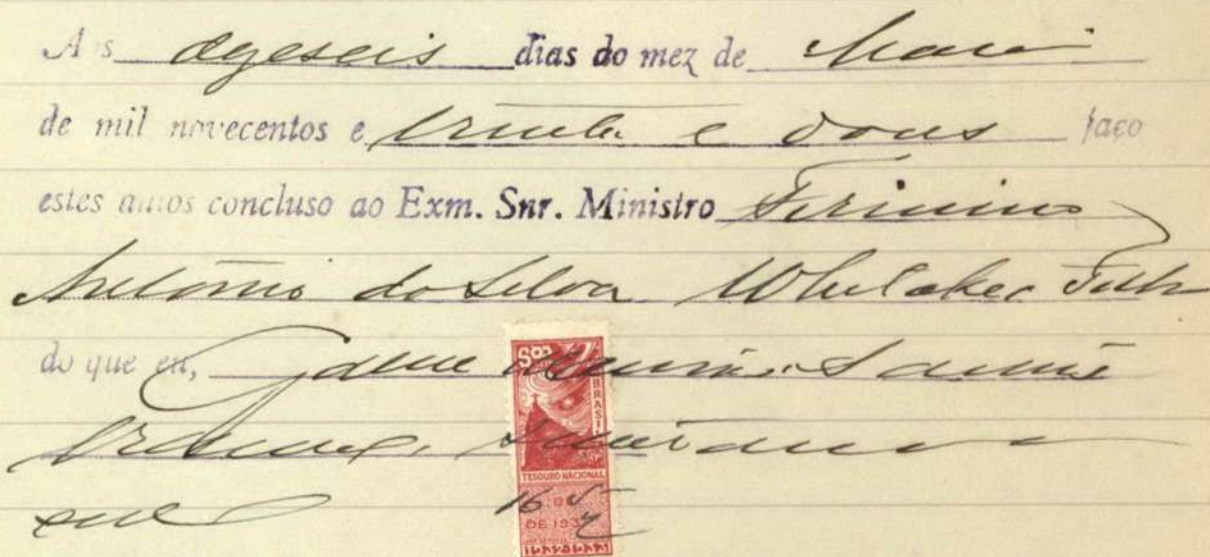 Aos dezeseis dias do mez de Maio
de mil novecentos e trinta e dous faço
estes autos concluso ao Exm. Snr. Ministro Firmino
Antonio da Silva Whitaker Filho
do que eu,
SOO BRASIL
TESOURO NACIONAL
16 5
DE 193